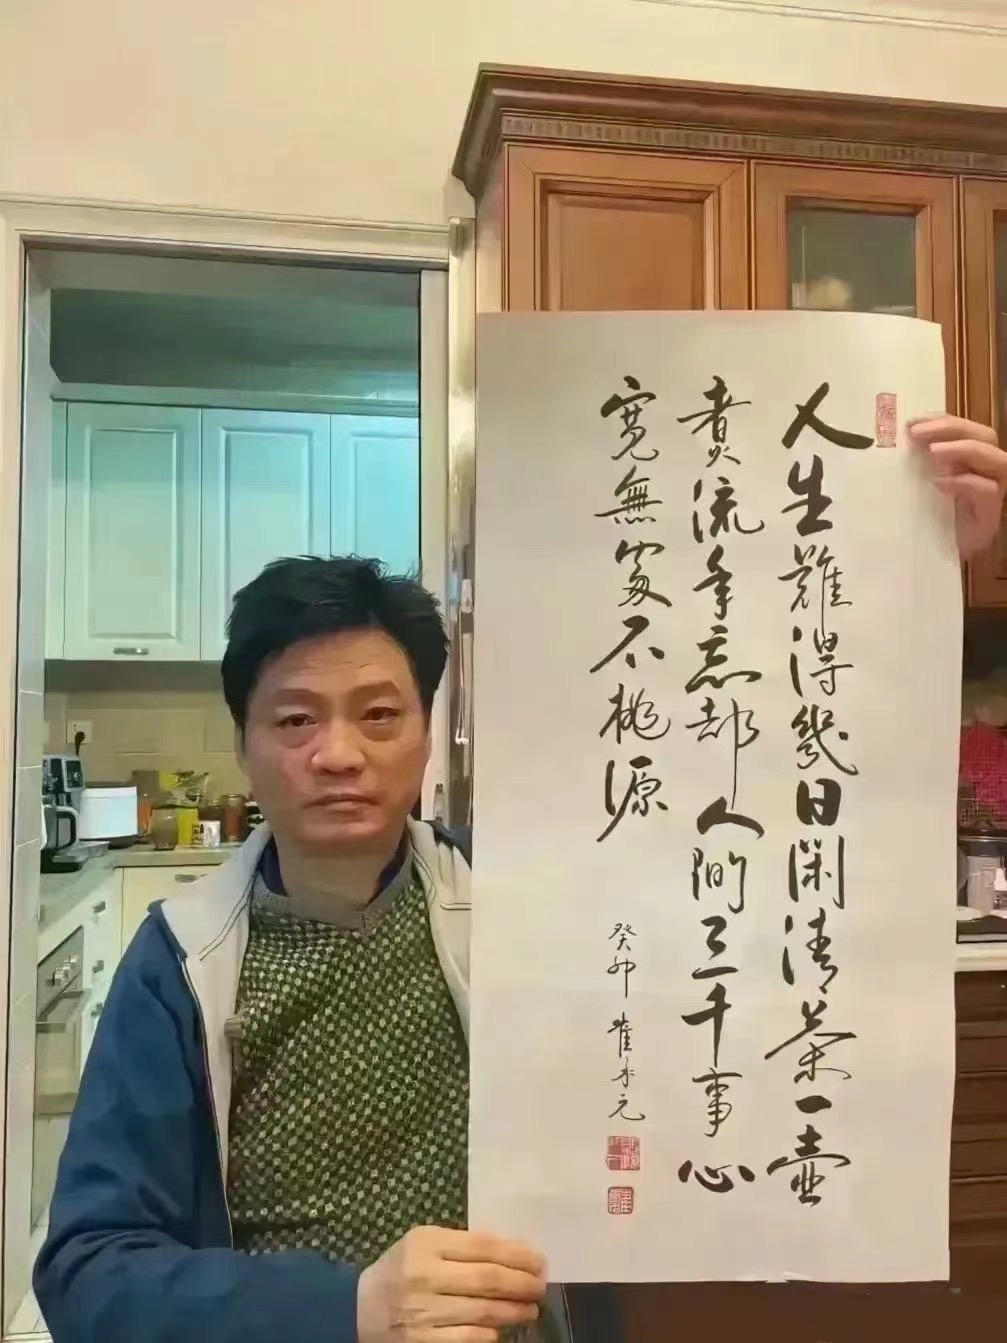 人生難得幾日閑清茶一壺
煑流年忘却人間三千事心
寬無處不桃源
癸卯 崔永元